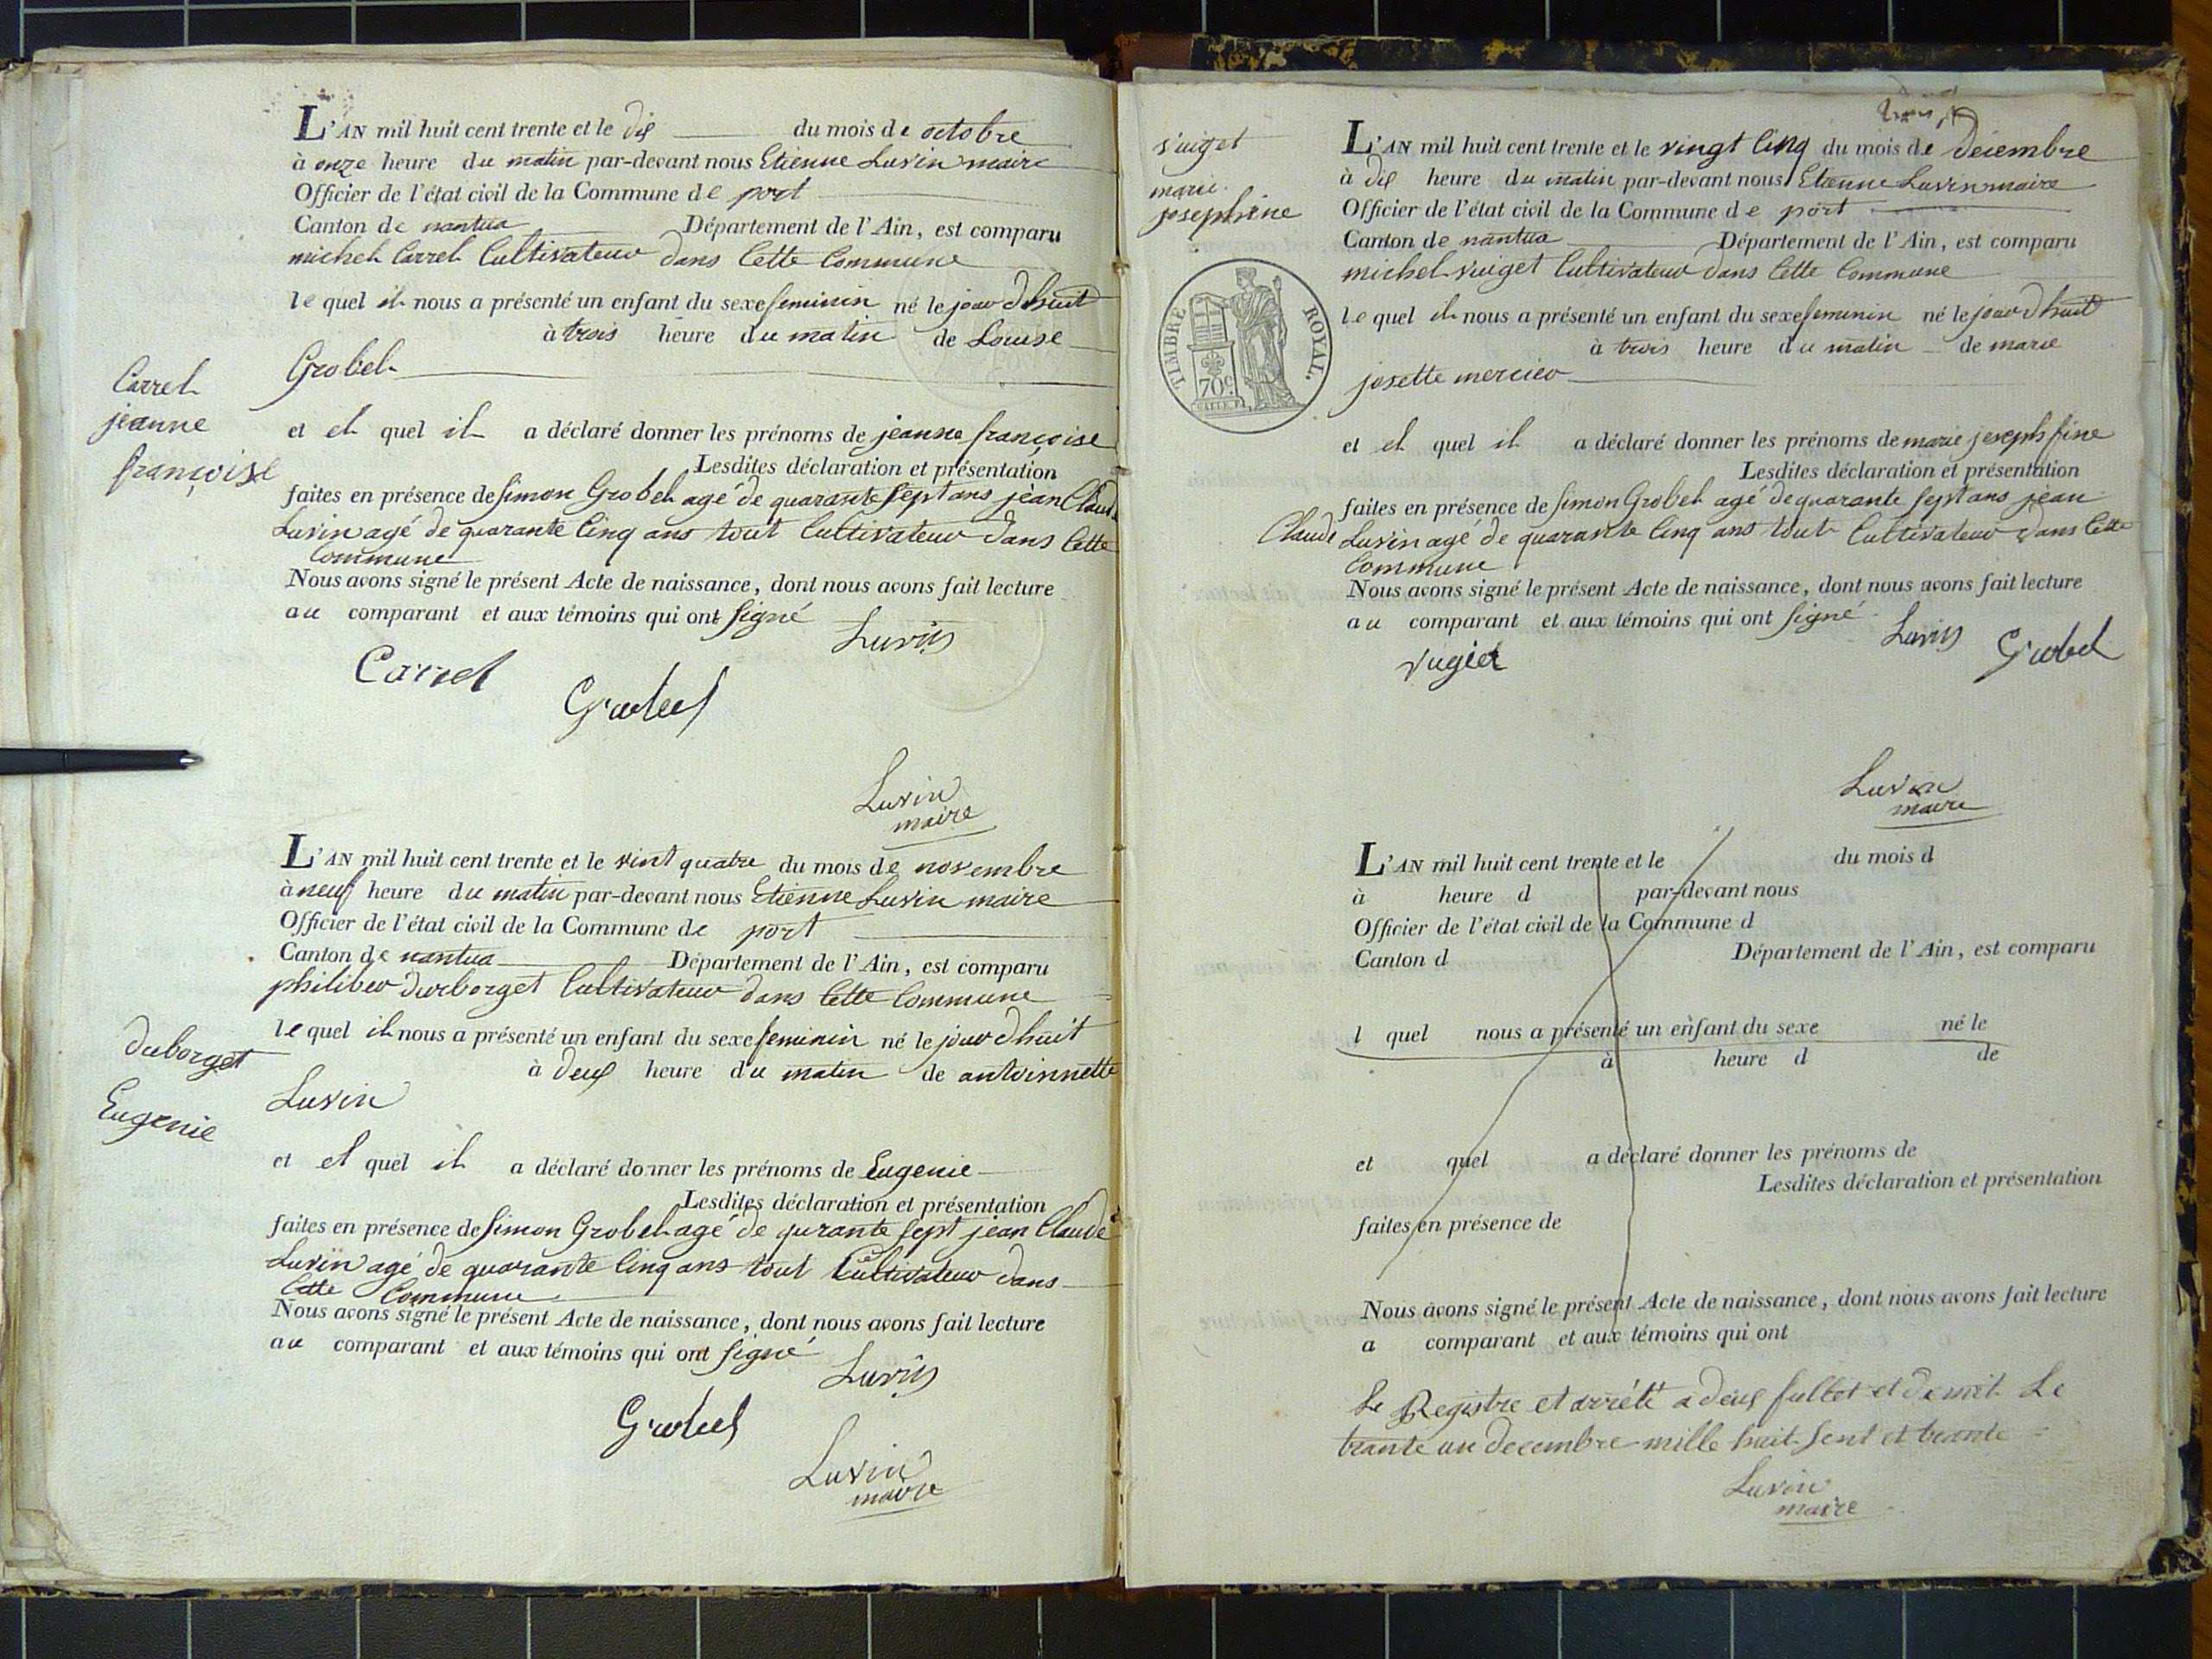 L'AN mil huit cent trente et le dix du mois de octobre
à onze heure du matin par-devant nous Etienne Luvin maire
Officier de l'état civil de la Commune de port
Canton de nantua Département de l'Ain, est comparu
michel Carrel Cultivateur dans Cette Commune
le quel il nous a présenté un enfant du sexe feminin né le jour dhuit
à trois heure du matin de Louise
Grobel
Carrel
jeanne
françoise
et el quel il a déclaré donner les prénoms de jeanne françoise
Lesdites déclaration et présentation
faites en présence de Simon Grobel agé de quarante Sept ans jean Claude
Luvin agé de quarante Cinq ans tout Cultivateur dans Cette
Commune
Nous avons signé le présent Acte de naissance, dont nous avons fait lecture
au comparant et aux témoins qui ont Signé
Luvin
Carrel
Grobel
Luvin
maire
L'AN mil huit cent trente et le vint quatre du mois de novembre
à neuf heure du matin par-devant nous Etienne Luvin maire
Officier de l'état civil de la Commune de port
Canton de nantua Département de l'Ain, est comparu
philiber Durborget Cultivateur dans Cette Commune
le quel il nous a présenté un enfant du sexe feminin né le jour dhuit
à deux heure du matin de antoinnette
Luvin
Duborget
Eugenie
et el quel il a déclaré donner les prénoms de Eugenie
Lesdites déclaration et présentation
faites en présence de Simon Grobel agé de qurante Sept jean Claude
Luvin agé de quarante Cinq ans tout Cultivateur dans
Cette Commune
Nous avons signé le présent Acte de naissance, dont nous avons fait lecture
au comparant et aux témoins qui ont Signé
Luvin
Grobel
Luvin
maire
vuiget
marie
josephine
L'AN mil huit cent trente et le vingt Cinq du mois de décembre
à dix heure du matin par-devant nous Etienne Luvin maire
Officier de l'état civil de la Commune de port
Canton de nantua Département de l'Ain, est comparu
michel vuiget Cultivateur dans Cette Commune
TIMBRE ROYAL.
70c
le quel il nous a présenté un enfant du sexe feminin né le jour dhuit
à trois heure du matin de marie
josette mercier
et el quel il a déclaré donner les prénoms de marie joseph fine
Lesdites déclaration et présentation
faites en présence de Simon Grobel agé de quarante Sept ans jean
Claude Luvin agé de quarante Cinq ans tout Cultivateur dans Cette
Commune
Nous avons signé le présent Acte de naissance, dont nous avons fait lecture
au comparant et aux témoins qui ont Signé
Luvin Grobel
vugiet
Luvin
maire
L'AN mil huit cent trente et le du mois d
à heure d par-devant nous
Officier de l'état civil de la Commune d
Canton d Département de l'Ain, est comparu
l quel nous a présenté un enfant du sexe né le
à heure d de
et quel a déclaré donner les prénoms de
Lesdites déclaration et présentation
faites en présence de
Nous avons signé le présent Acte de naissance, dont nous avons fait lecture
a comparant et aux témoins qui ont
Le Registre et arrété a deux fullet et demit Le
trante un decembre mille huit Sent et trante
Luvin
maire